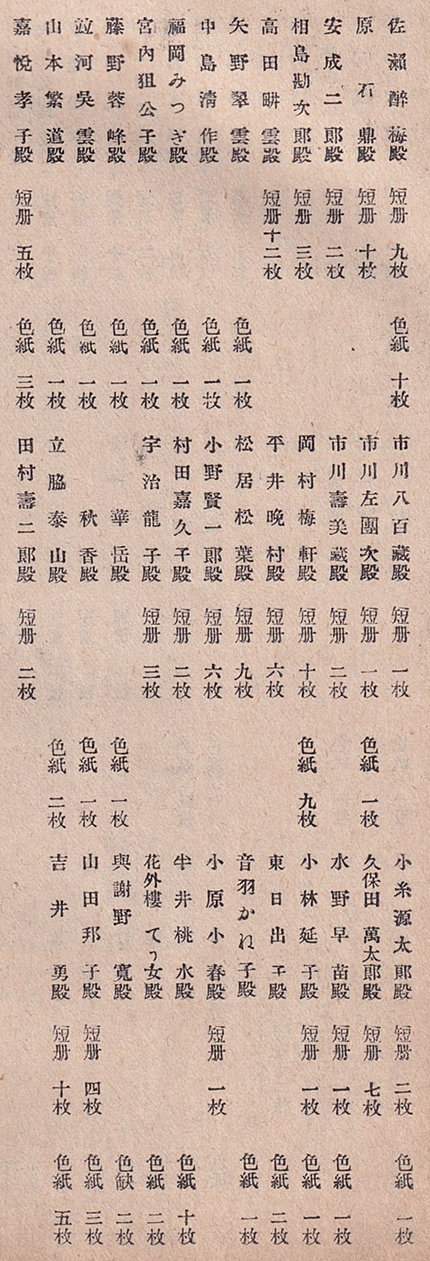 佐瀬醉梅殿 短册 九枚 色紙 十枚
原石鼎殿 短册 十枚
安成二郎殿 短册 二枚
相島勘次郎殿 短册 三枚
高田畊雲殿 短册十二枚
矢野翠雲殿 色紙 一枚
中島清作殿 色紙 一枚
福岡みつぎ殿 色紙 一枚
宮内狙公子殿 色紙 一枚
藤野蓉峰殿 色紙 一枚
竝河吳雲殿 色紙 一枚
山本繁道殿 色紙 一枚
嘉悅孝子殿 短册 五枚 色紙 三枚
市川八百藏殿 短册 一枚
市川左團次殿 短册 一枚 色紙 一枚
市川壽美藏殿 短册 二枚
岡村梅軒殿 短册 十枚 色紙 九枚
平井晚村殿 短册 六枚
松居松葉殿 短册 九枚
小野賢一郎殿 短册 六枚
村田嘉久子殿 短册 二枚
宇治龍子殿 短册 三枚
華岳殿 色紙 一枚
秋香殿 色紙 一枚
立脇泰山殿 色紙 二枚
田村壽二郎殿 短册 二枚
小糸源太郎殿 短册 二枚 色紙 一枚
久保田萬太郎殿 短册 七枚
水野早苗殿 短册 一枚 色紙 一枚
小林延子殿 短册 一枚 色紙 一枚
東日出子殿 色紙 二枚
音羽かね子殿 色紙 一枚
小原小春殿 短册 一枚
半井桃水殿 色紙 十枚
花外樓てう女殿 色紙 二枚
與謝野寬殿 色紙 二枚
山田邦子殿 短册 四枚 色紙 三枚
吉井勇殿 短册 十枚 色紙 五枚